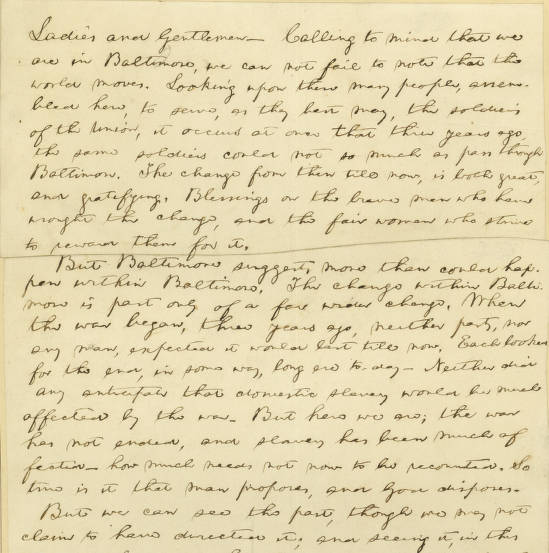 Ladies and Gentlemen — Calling to mind that we
are in Baltimore, we can not fail to note that the
world moves. Looking upon these many people, assem-
bled here, to serve, as they best may, the soldiers
of the Union, it occurs at once that three years ago,
the same soldiers could not so much as pass through
Baltimore. The change from then till now, is both great,
and gratifying. Blessings on the brave men who have
wrought the change, and the fair women who strive
to reward them for it.
But Baltimore suggests more than could hap-
pen within Baltimore. The change within Balti-
more is part only of a far wider change. When
the war began, three years ago, neither party, nor
any man, expected it would last till now. Each looked
for the end, in some way, long ere to-day. Neither did
any anticipate that domestic slavery would be much
affected by the war. But here we are; the war
has not ended, and slavery has been much af
fected — how much needs not now to be recounted. So
true is it that man proposes, and God disposes.
But we can see the past, though we may not
claim to have directed it; and seeing it, in this